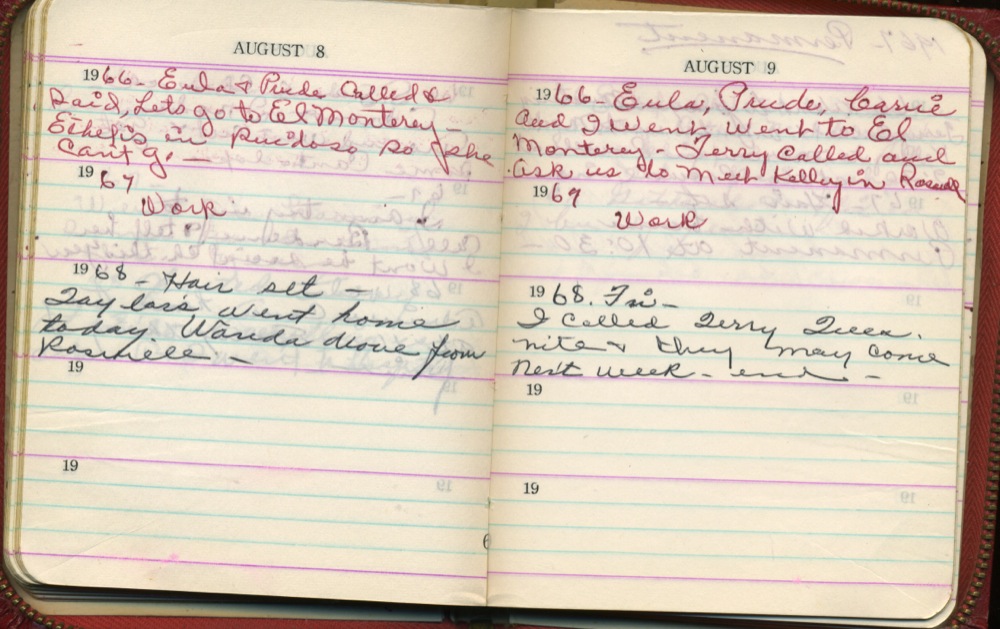 AUGUST 8
1966 - Eula & Prude Called &
Said, Lets go to El Monterey -
Ethel's in Ruidoso so she
Can't go -
1967
Work
1968 - Hair set -
Taylors went home
today Wanda drove from
Roshell -
19
19
1967 Permanent
AUGUST 9
1966 - Eula, Prude, Carrie
and I went, went to El
Monterey - Terry called and
ask us to meet Kelly in Roswell
1967
Work
1968. Fri -
I called Terry Tues.
nite & they may come
next week - end -
19
19
6